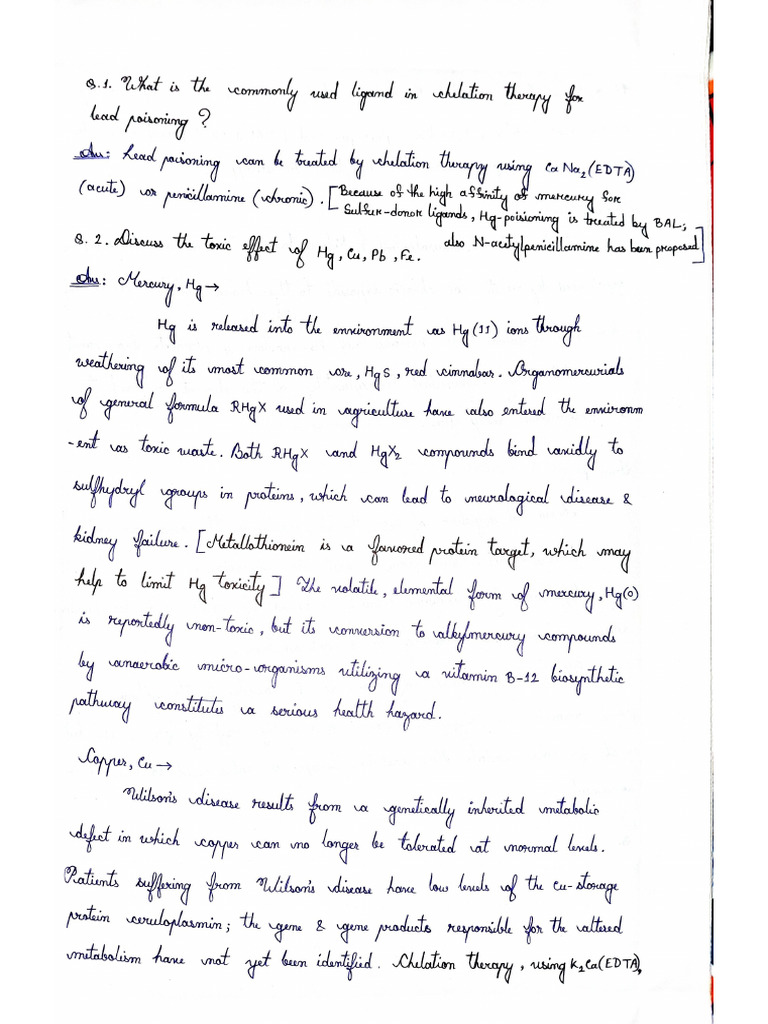 Q.1. What is the commonly used ligand in chelation therapy for
lead poisoning ?
Ans: Lead poisoning can be treated by chelation therapy using CaNa₂(EDTA)
(acute) or penicillamine (chronic). [Because of the high affinity of mercury for
Sulfur-donor ligands, Hg-poisioning is treated by BAL;
also N-acetylpenicillamine has been proposed]
Q. 2. Discuss the toxic effect of Hg, Cu, Pb, Fe.
Ans: Mercury, Hg →
Hg is released into the environment as Hg(II) ions through
weathering of its most common ore, HgS, red cinnabar. Organomercurials
of general formula RHgX used in agriculture have also entered the environm
-ent as toxic waste. Both RHgX and HgX₂ compounds bind avidly to
sulfhydryl groups in proteins, which can lead to neurological disease &
kidney failure. [Metallothionein is a favored protein target, which may
help to limit Hg toxicity] The volatile, elemental form of mercury, Hg(0)
is reportedly non-toxic, but its conversion to alkylmercury compounds
by anaerobic micro-organisms utilizing a vitamin B-12 biosynthetic
pathway constitutes a serious health hazard.
Copper, Cu →
Wilson's disease results from a genetically inherited metabolic
defect in which copper can no longer be tolerated at normal levels.
Patients suffering from Wilson's disease have low levels of the Cu-storage
protein ceruloplasmin; the gene & gene products responsible for the altered
metabolism have not yet been identified. Chelation therapy, using K₂Ca(EDTA),